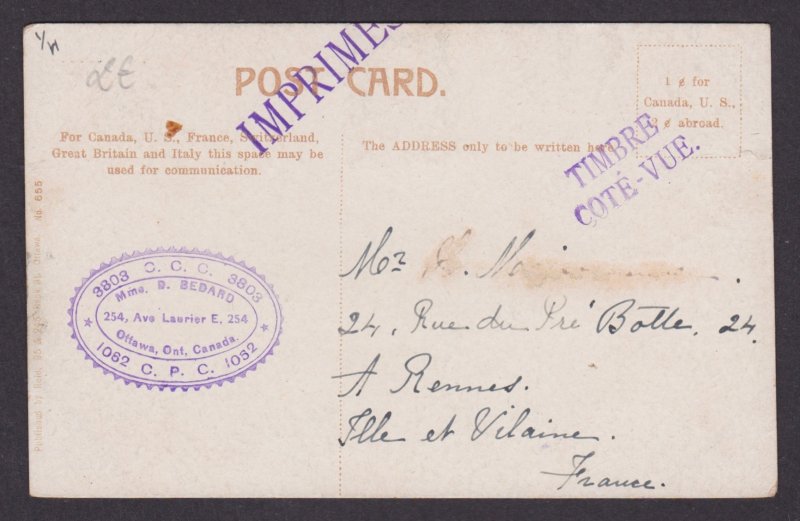 POST CARD.
IMPRIMES
1 ¢ for
Canada, U. S.,
2 ¢ abroad.
TIMBRE
COTÉ-VUE.
For Canada, U. S., France, Switzerland,
Great Britain and Italy this space may be
used for communication.
The ADDRESS only to be written here.
No. 655
3803 C. C. C. 3803
Mme. D. BEDARD
254, Ave Laurier E. 254
Ottawa, Ont, Canada.
1062 C. P. C. 1062
Mr
24, Rue du Pré Botté, 24
A Rennes.
Ille et Vilaine.
France.